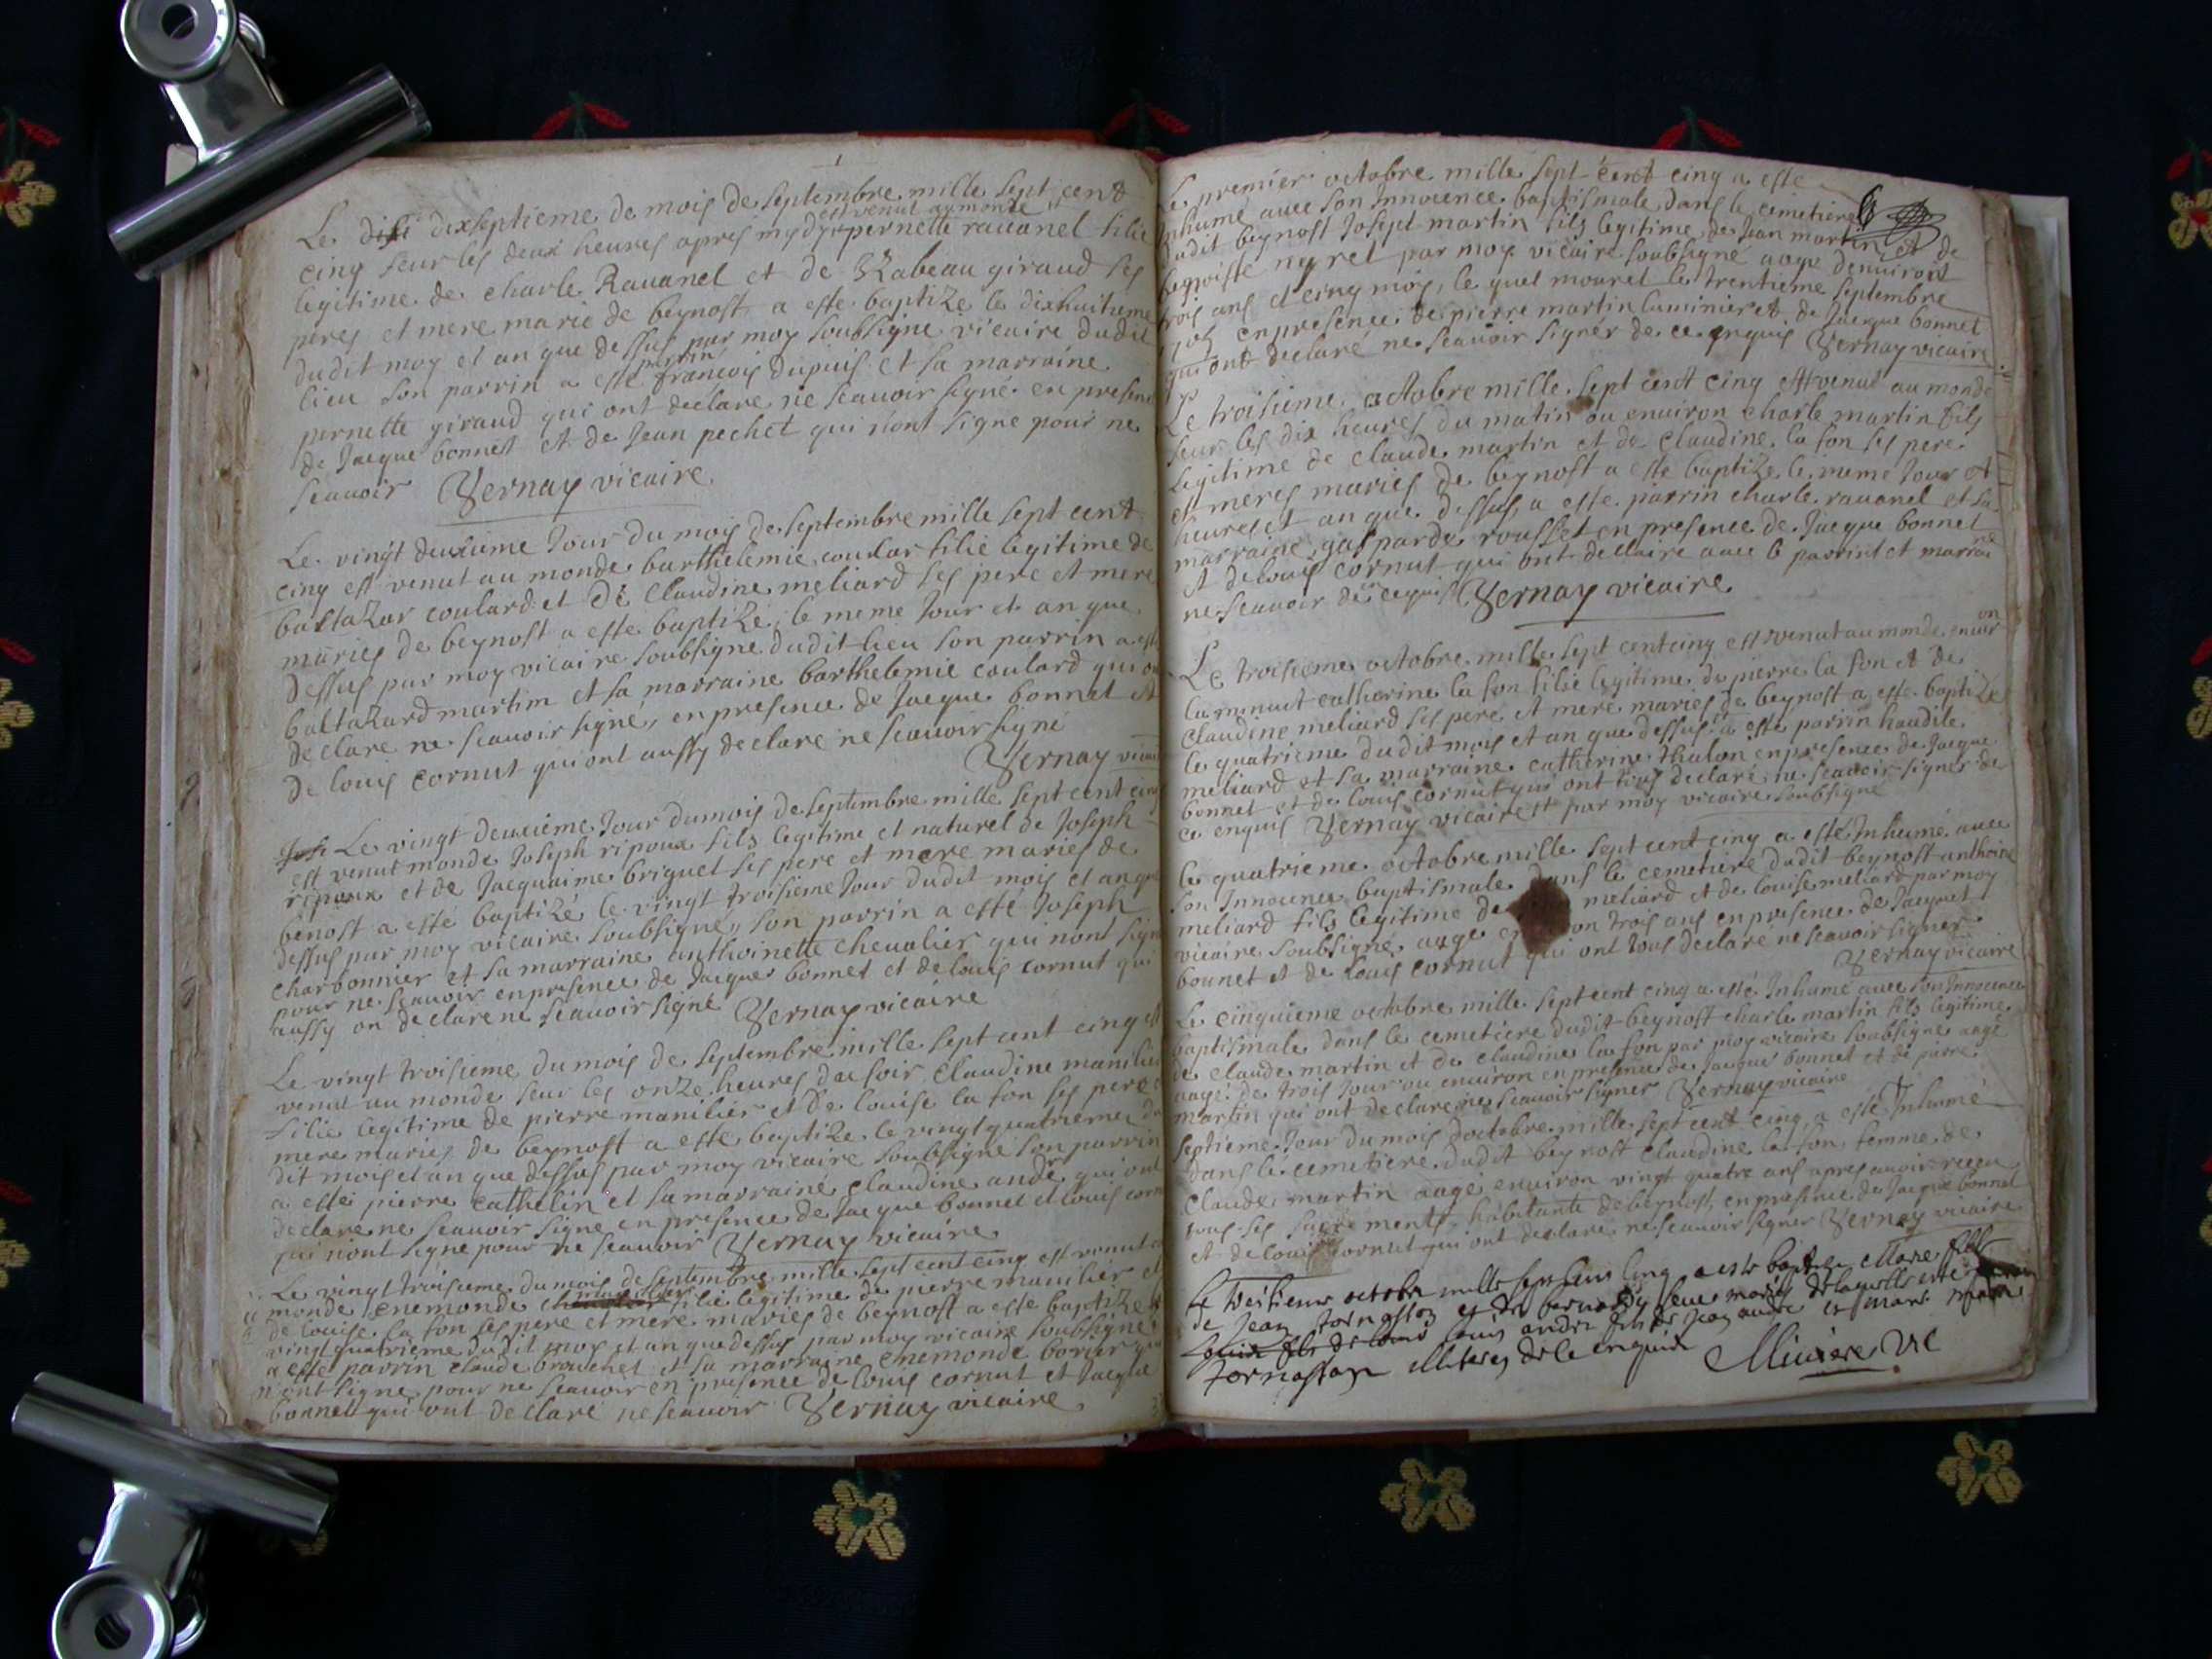 Le dixseptieme de mois de septembre mille sept cent
cinq seur les deux heures apres mydy est venut au monde pernette rauanel filie
legitime de charle Rauanel et de giraud ses
peres et mere marie de beynost a este baptize le dixhuitieme
dudit moy et an que dessus par moy soubsigne vicaire dudit
lieu son parrin a este francois dupuis et sa marraine
pernette giraud qui ont declare ne scauoir signé en presen
de Jacque bonnet et de Jean pechet qui nont signe pour ne
scauoir Vernay vicaire
Le vingt deuxieme Jour du mois de septembre mille sept cent
cinq est venut au monde barthelemie coular filie legitime de
baltazar coulard et de Claudine meliard ses pere et mere
maries de beynost a este baptize le meme Jour et an que
dessus par moy vicaire soubsigne dudit lieu son parrin a est
baltazard martim et sa marraine barthelemie coulard qui on
declare ne scauoir signé, en presence de Jacque bonnet et
de louis cornut qui ont aussy declare ne scauoir signé
Vernay vicai
Le vingt deuxieme Jour du mois de septembre mille sept cent cinq
est venut monde Joseph ripoux fils legitime et naturel de Joseph
ripoux et de Jacquaime briguet ses pere et mere maries de
benost a esté baptizé le vingt troisieme Jour dudit mois et an que
dessus par moy vicaire soubsigne, son parrin a esté Joseph
charbonnier et sa marraine anthoinette cheualier qui nont signe
pour ne scauoir en presence de Jacque bonnet et de louis cornut qui
aussy on declare ne scauoir signé Vernay vicaire
Le vingt troisieme du mois de septembre mille sept cent cinq est
venut au monde seur les onze heures du soir Claudine manilier
filie legitime de pierre manilier et de louise la fon ses pere
mere maries de beynost a este baptize le vingt quatrieme du
dit mois et an que dessus par moy vicaire soubsigne son parrin
a este pierre cathelin et sa marraine claudine andé qui ont
declare ne scauoir signe en presence de Jacque bonnet et louis corn
qui nont signe pour ne scauoir Vernay vicaire
Le vingt troisieme du mois de septembre mille sept cent cinq est venut
monde enemonde manilier filie legitime de pierre manilier et
de louise la fon ses pere et mere maries de beynost a este baptize
vingt quatrieme dudit moy et an que dessus par moy vicaire soubsigne
a este parrin claude brouchet et sa marraine enemonde borlier qui
nont signe pour ne scauoir en presence de louis cornut et Jacque
bonnet qui ont declaré ne scauoir Vernay vicaire
Le premier octobre mille sept cent cinq a este
Inhumé auec son Innocence baptismale dans le cemetiere
dudit beynost Josept martin fils legitime de Jean martin et de
nyret par moy vicaire soubsigné aage denuiront
trois ans et cinq mois, le quel mourel le trentieme septembre
en presence de pierre martin luminier et de Jacque bonnet
qui ont declaré ne scauoir signer de ce enquis Vernay vicaire
Le troisieme octobre mille sept cent cinq est venut au monde
seur les dix heures du matin ou enuiron charle martin fils
legitime de claude martin et de Claudine la fon ses pere
et meres maries de beynost a este baptize le meme Jour et
heures et an que dessus a este parrin charle rauanel et sa
marraine gasparde rousset en presence de Jacque bonnet
et de louis cornut qui ont dellaire auec le parrint et marrai
ne scauoir de ce enquis Vernay vicaire
Le troisieme octobre mille sept cent cinq est venut au monde enuiron
la minuit catherine la fon filie legitime de pierre la fon et de
Claudine meliard ses pere et mere maries de beynost a este baptize
le quatrieme dudit mois et an que dessus a esté parrin
meliard et sa marraine catherine thalon en presence de Jacque
bonnet et de louis cornut qui ont tous declaré ne scauoir signer de
ce enquis Vernay vicaire et par moy vicaire soubsigne
le quatrieme octobre mille sept cent cinq a esté Inhumé auec
son Innocence baptismale dans le cemetiere dudit beynost anthoine
meliard fils legitime de meliard et de louise meliard par moy
vicaire soubsigné aage on trois ans en presence de Jacque
bonnet et de louis cornut qui ont tous declaré ne scauoir signer
Vernay vicaire
Le cinquieme octobre mille sept cent cinq a esté Inhumé auec son Innocence
baptismale dans le cemetiere dudit beynost charle martin fils legitime
de claude martin et de claudine la fon par moy vicaire soubsigne aage
aagé de trois Jour ou enuiron en presence de Jacque bonnet et de pierre
martin qui ont declare ne scauoir signer Vernay vicaire
septieme Jour du mois doctobre mille sept cent cinq a este Inhumé
dans le cemetiere dudit beynost Claudine la fon femme de
Claude martin aage enuiron vingt quatre ans apres auoir receu
tous ses sacrements habitante de beynost, en presence de Jacque bonnet
et de louis cornut qui ont declare ne scauoir signer Vernay vicaire
Le octobre mille sept cens cinq a este baptize Marie fille
de Jean fornasson et de bernardy seue mariés
louis fils de louis louis andre fils de Jean andre et marie
fornasson illiteres de ce enquis Miniere Vic